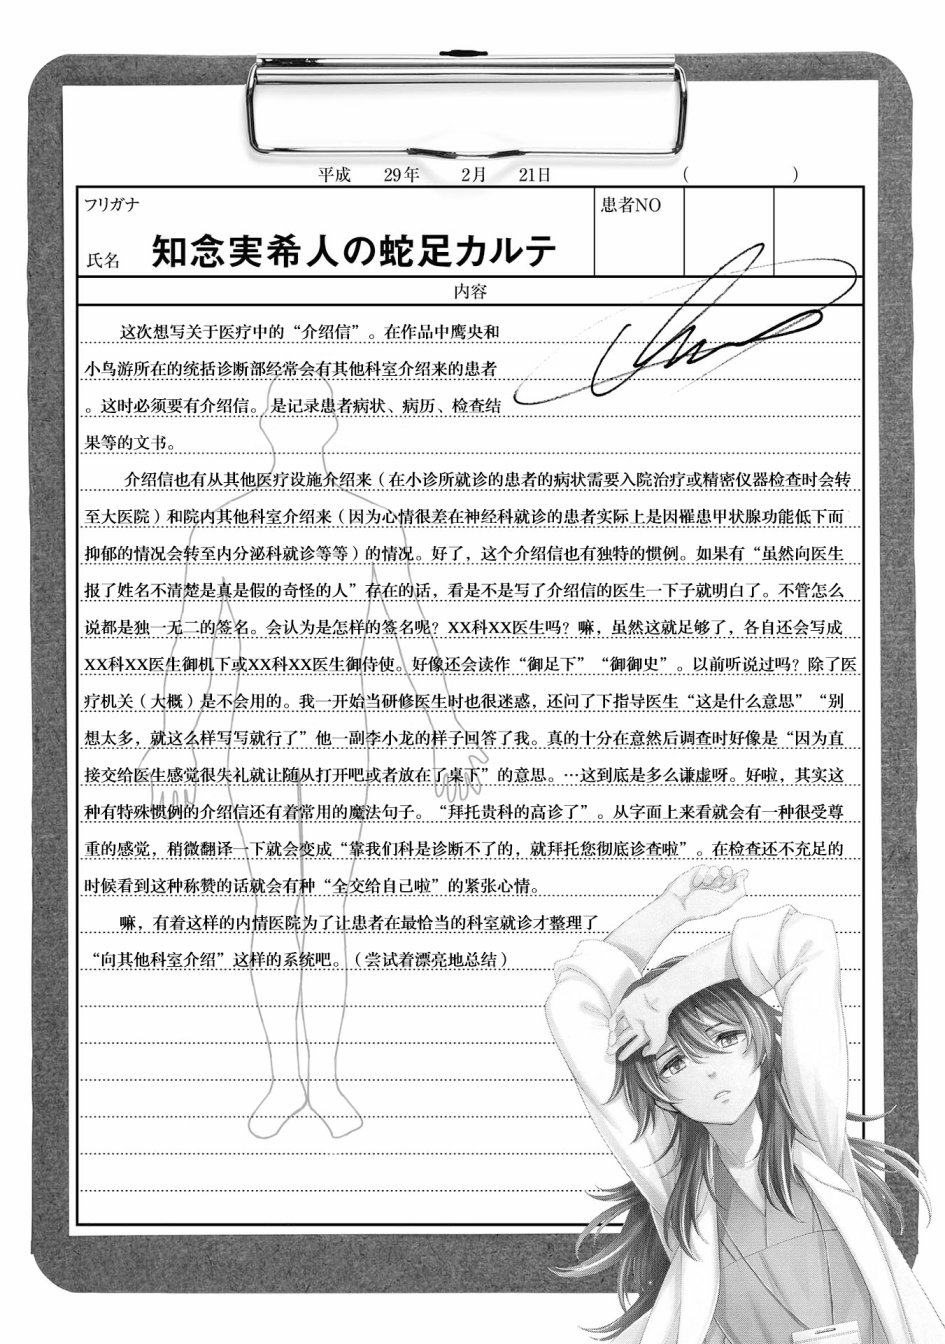 平成 29年 2月 21日 ( )
フリガナ
患者NO
氏名 知念実希人の蛇足カルテ
内容
这次想写关于医疗中的“介绍信”。在作品中鹰央和
小鸟游所在的统括诊断部经常会有其他科室介绍来的患者
。这时必须要有介绍信。 是记录患者病状、病历、检查结
果等的文书。
介绍信也有从其他医疗设施介绍来（在小诊所就诊的患者的病状需要入院治疗或精密仪器检查时会转
至大医院）和院内其他科室介绍来（因为心情很差在神经科就诊的患者实际上是因罹患甲状腺功能低下而
抑郁的情况会转至内分泌科就诊等等）的情况。好了，这个介绍信也有独特的惯例。如果有“虽然向医生
报了姓名不清楚是真是假的奇怪的人”存在的话，看是不是写了介绍信的医生一下子就明白了。不管怎么
说都是独一无二的签名。会认为是怎样的签名呢？XX科XX医生吗？嘛，虽然这就足够了，各自还会写成
XX科XX医生御机下或XX科XX医生御侍使。好像还会读作“御足下”“御御史”。以前听说过吗？除了医
疗机关（大概）是不会用的。我一开始当研修医生时也很迷惑，还问了下指导医生“这是什么意思”“别
想太多，就这么样写写就行了”他一副李小龙的样子回答了我。真的十分在意然后调查时好像是“因为直
接交给医生感觉很失礼就让随从打开吧或者放在了桌下”的意思。…这到底是多么谦虚呀。好啦，其实这
种有特殊惯例的介绍信还有着常用的魔法句子。“拜托贵科的高诊了”。从字面上来看就会有一种很受尊
重的感觉，稍微翻译一下就会变成“靠我们科是诊断不了的，就拜托您彻底诊查啦”。在检查还不充足的
时候看到这种称赞的话就会有种“全交给自己啦”的紧张心情。
嘛，有着这样的内情医院为了让患者在最恰当的科室就诊才整理了
“向其他科室介绍”这样的系统吧。（尝试着漂亮地总结）